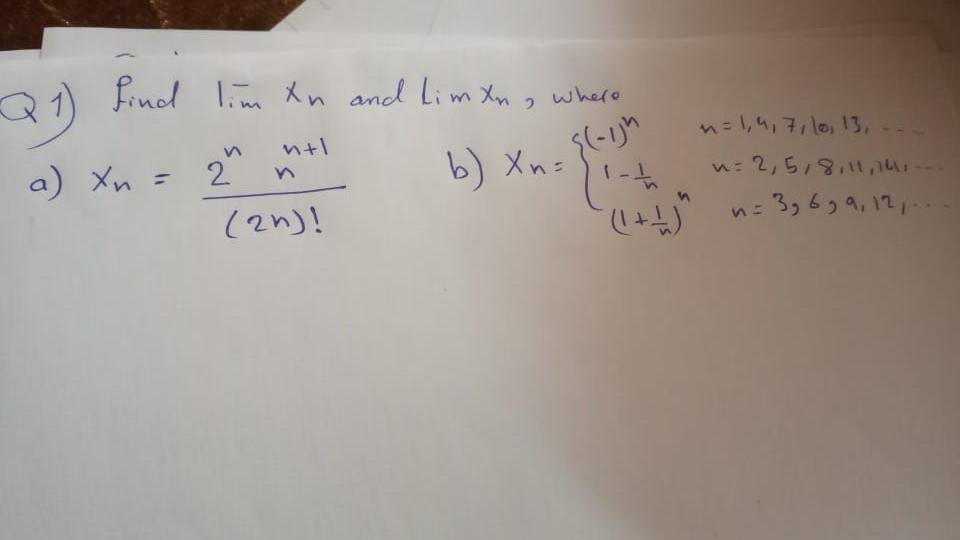 Q1) find lim̅ Xn and Lim Xn, where
a) Xn = 2^n n^{n+1} / (2n)!
b) Xn = { (-1)^n n = 1, 4, 7, 10, 13, ....
1 - 1/n n = 2, 5, 8, 11, 14, ....
(1 + 1/n)^n n = 3, 6, 9, 12, ....